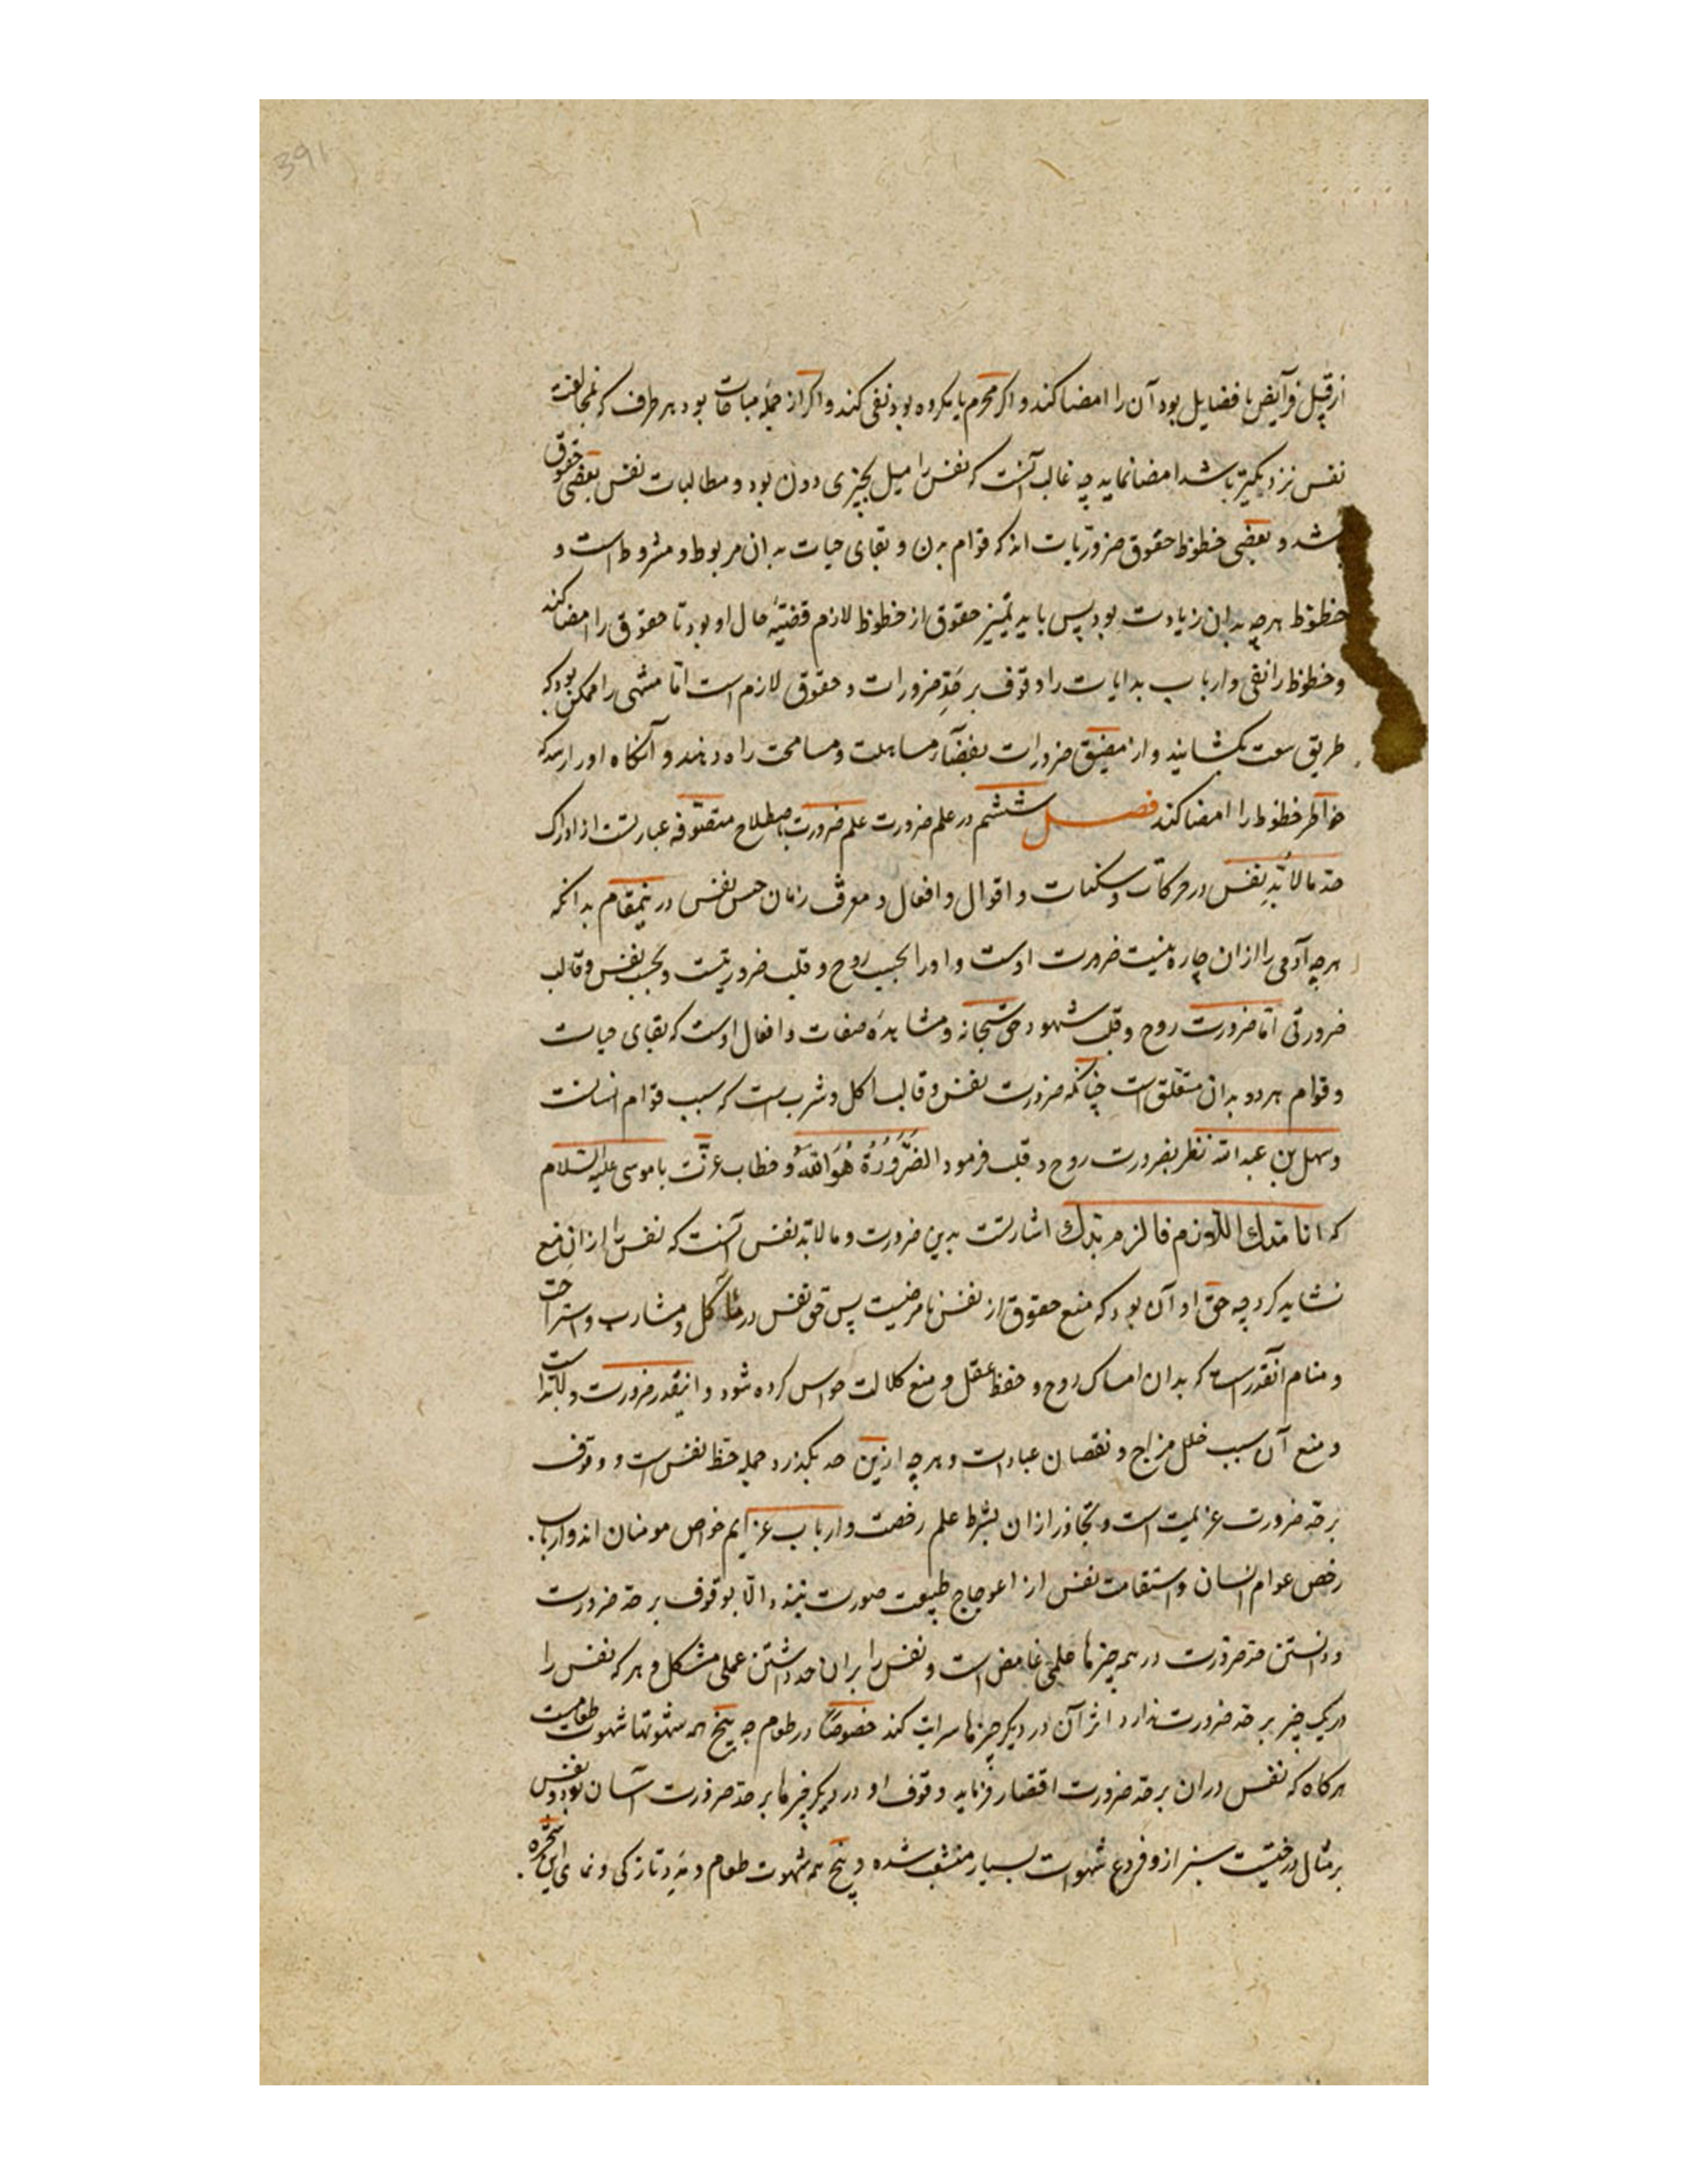 391
از قبیل فرآیض یا فضایل بود آن را امضا کند و اکر محرم یا مکروه بود نفی کند و اکر از جمله مباحات بود هر طرف که بمخالفت
نفس نزدیکتر باشد امضا نماید چه غالب آنست که نفس را میل بچیزی دون بود و مطالبات نفس بعضی حقوق
باشد و بعضی حظوظ حقوق ضروریات اند که قوام بدن و بقای حیات بدان مربوط و مشروط است و
حظوظ هرچه بدان زیادت بود پس باید تمییز حقوق از حظوظ لازم قضیّه حال او بود تا حقوق را امضا کند
و حظوظ را نفی و ارباب بدایات را وقوف بر حدّ ضرورات و حقوق لازم است امّا منتهی را ممکن بود که
طریق سعت بکشایند و از مضیق ضرورات بفضآء مساهلت و مسامحت راه دهند و آنکاه او را رسد که
خواطر حظوظ را امضا کند فصل ششم در علم ضرورت علم ضرورت باصطلاح متصوّفه عبارتست از ادراک
حد مالابدّ نفس در حرکآت و سکنات و اقوال و افعال و معرفت زمان حبس نفس درینمقام بدانکه
هرچه آدمی را از ان چاره نیست ضرورت اوست و او را بحسب روح و قلب ضروریتست و بحسب نفس و قالب
ضرورتی امّا ضرورت روح و قلب شهود حق سبحانه و مشاهدهٔ صفات و افعال اوست که بقای حیات
و قوام هر دو بدان متعلق است چنانکه ضرورت نفس و قالب اکل و شرب است که سبب قوام انسانست
و سهل بن عبدالله نظر بضرورت روح و قلب فرمود الضَّرُورَةُ هُوَ اللّٰهُ و خطاب عزّت با موسی علیه السّلام
که انا بدك اللازم فالزم بدك اشارتست بدین ضرورت و مالابدّ نفس آنست که نفس را از ان منع
نشاید کرد چه حق او آن بود که منع حقوق از نفس نامرضیست پس حق نفس در مآکل و مشارب و استراحت
و منام آنقدر است که بدان امساک روح و حفظ عقل و منع کلالت حواس کرده شود و اینقدر ضرورت و لابد است
و منع آن سبب خلل مزاج و نقصان عبادات و هرچه ازین حد بکذرد جمله حظ نفس است و وقوف
بر حدّ ضرورت عزیمت است و تجاوز از ان بشرط علم رخصت و ارباب عزایم خواص مومنان اند و ارباب
رخص عوام ایشان و استقامت نفس از اعوجاج طبیعت صورت نبندد الّا بوقوف بر حد ضرورت
و دانستن حد ضرورت در همه چیزها علمی غامض است و نفس را بران حد داشتن عملی مشکل و هر که نفس را
در یک چیز بر حد ضرورت ندارد اثر آن در دیکر چیزها سرایت کند خصوصًا در طعام چه بیخ همه شهوتها شهوت طعامیست
هر کاه که نفس دران بر حد ضرورت اقتصار نماید وقوف او در دیکر چیزها بر حد ضرورت آسان بود و نفس
بر مثال درختیست سبز از و فروع شهوات بسیار منشعب شده و بیخ همه شهوت طعام و مدد تازکی و نمای این شجره